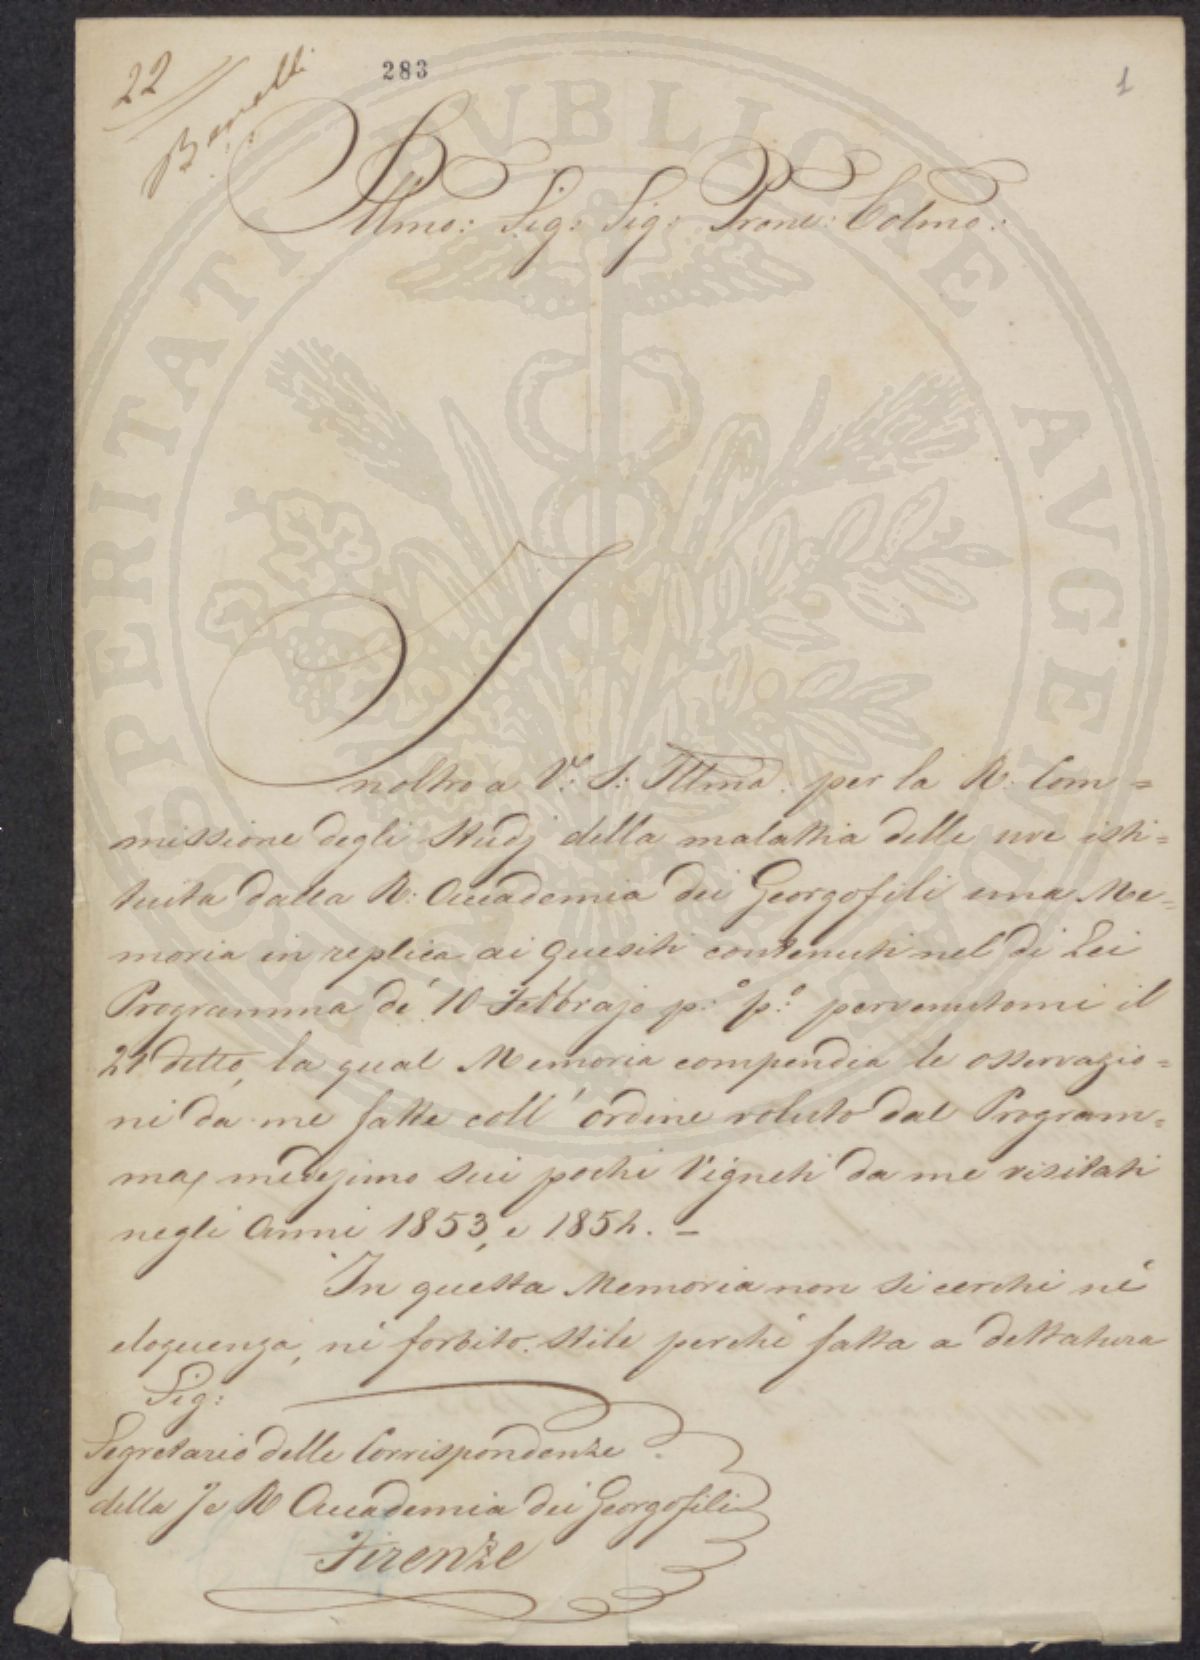 22
283
1
Illmo: Sig: Sig: Prone: Colmo:
Inoltro a V: S: Illma: per la R: Com=
missione degli Studj della malattia delle uve isti=
tuita dalla R: Accademia dei Georgofili una Me=
moria in replica ai quesiti contenuti nel di Lei
Programma de' 10 Febbrajo p:o p:o pervenutomi il
detto, la qual Memoria compendia le osservazio=
ni da me fatte coll' ordine voluto dal Program=
ma, medesimo sui pochi Vigneti da me visitati
negli Anni 1853, e 1854. –
In questa Memoria non si cerchi nè
eloquenza, nè forbito stile perchè fatta a dettatura
Sig:
Segretario delle Corrispondenze
della I e R Accademia dei Georgofili
Firenze
PROSPERITATI PVBLICAE AVGENDAE